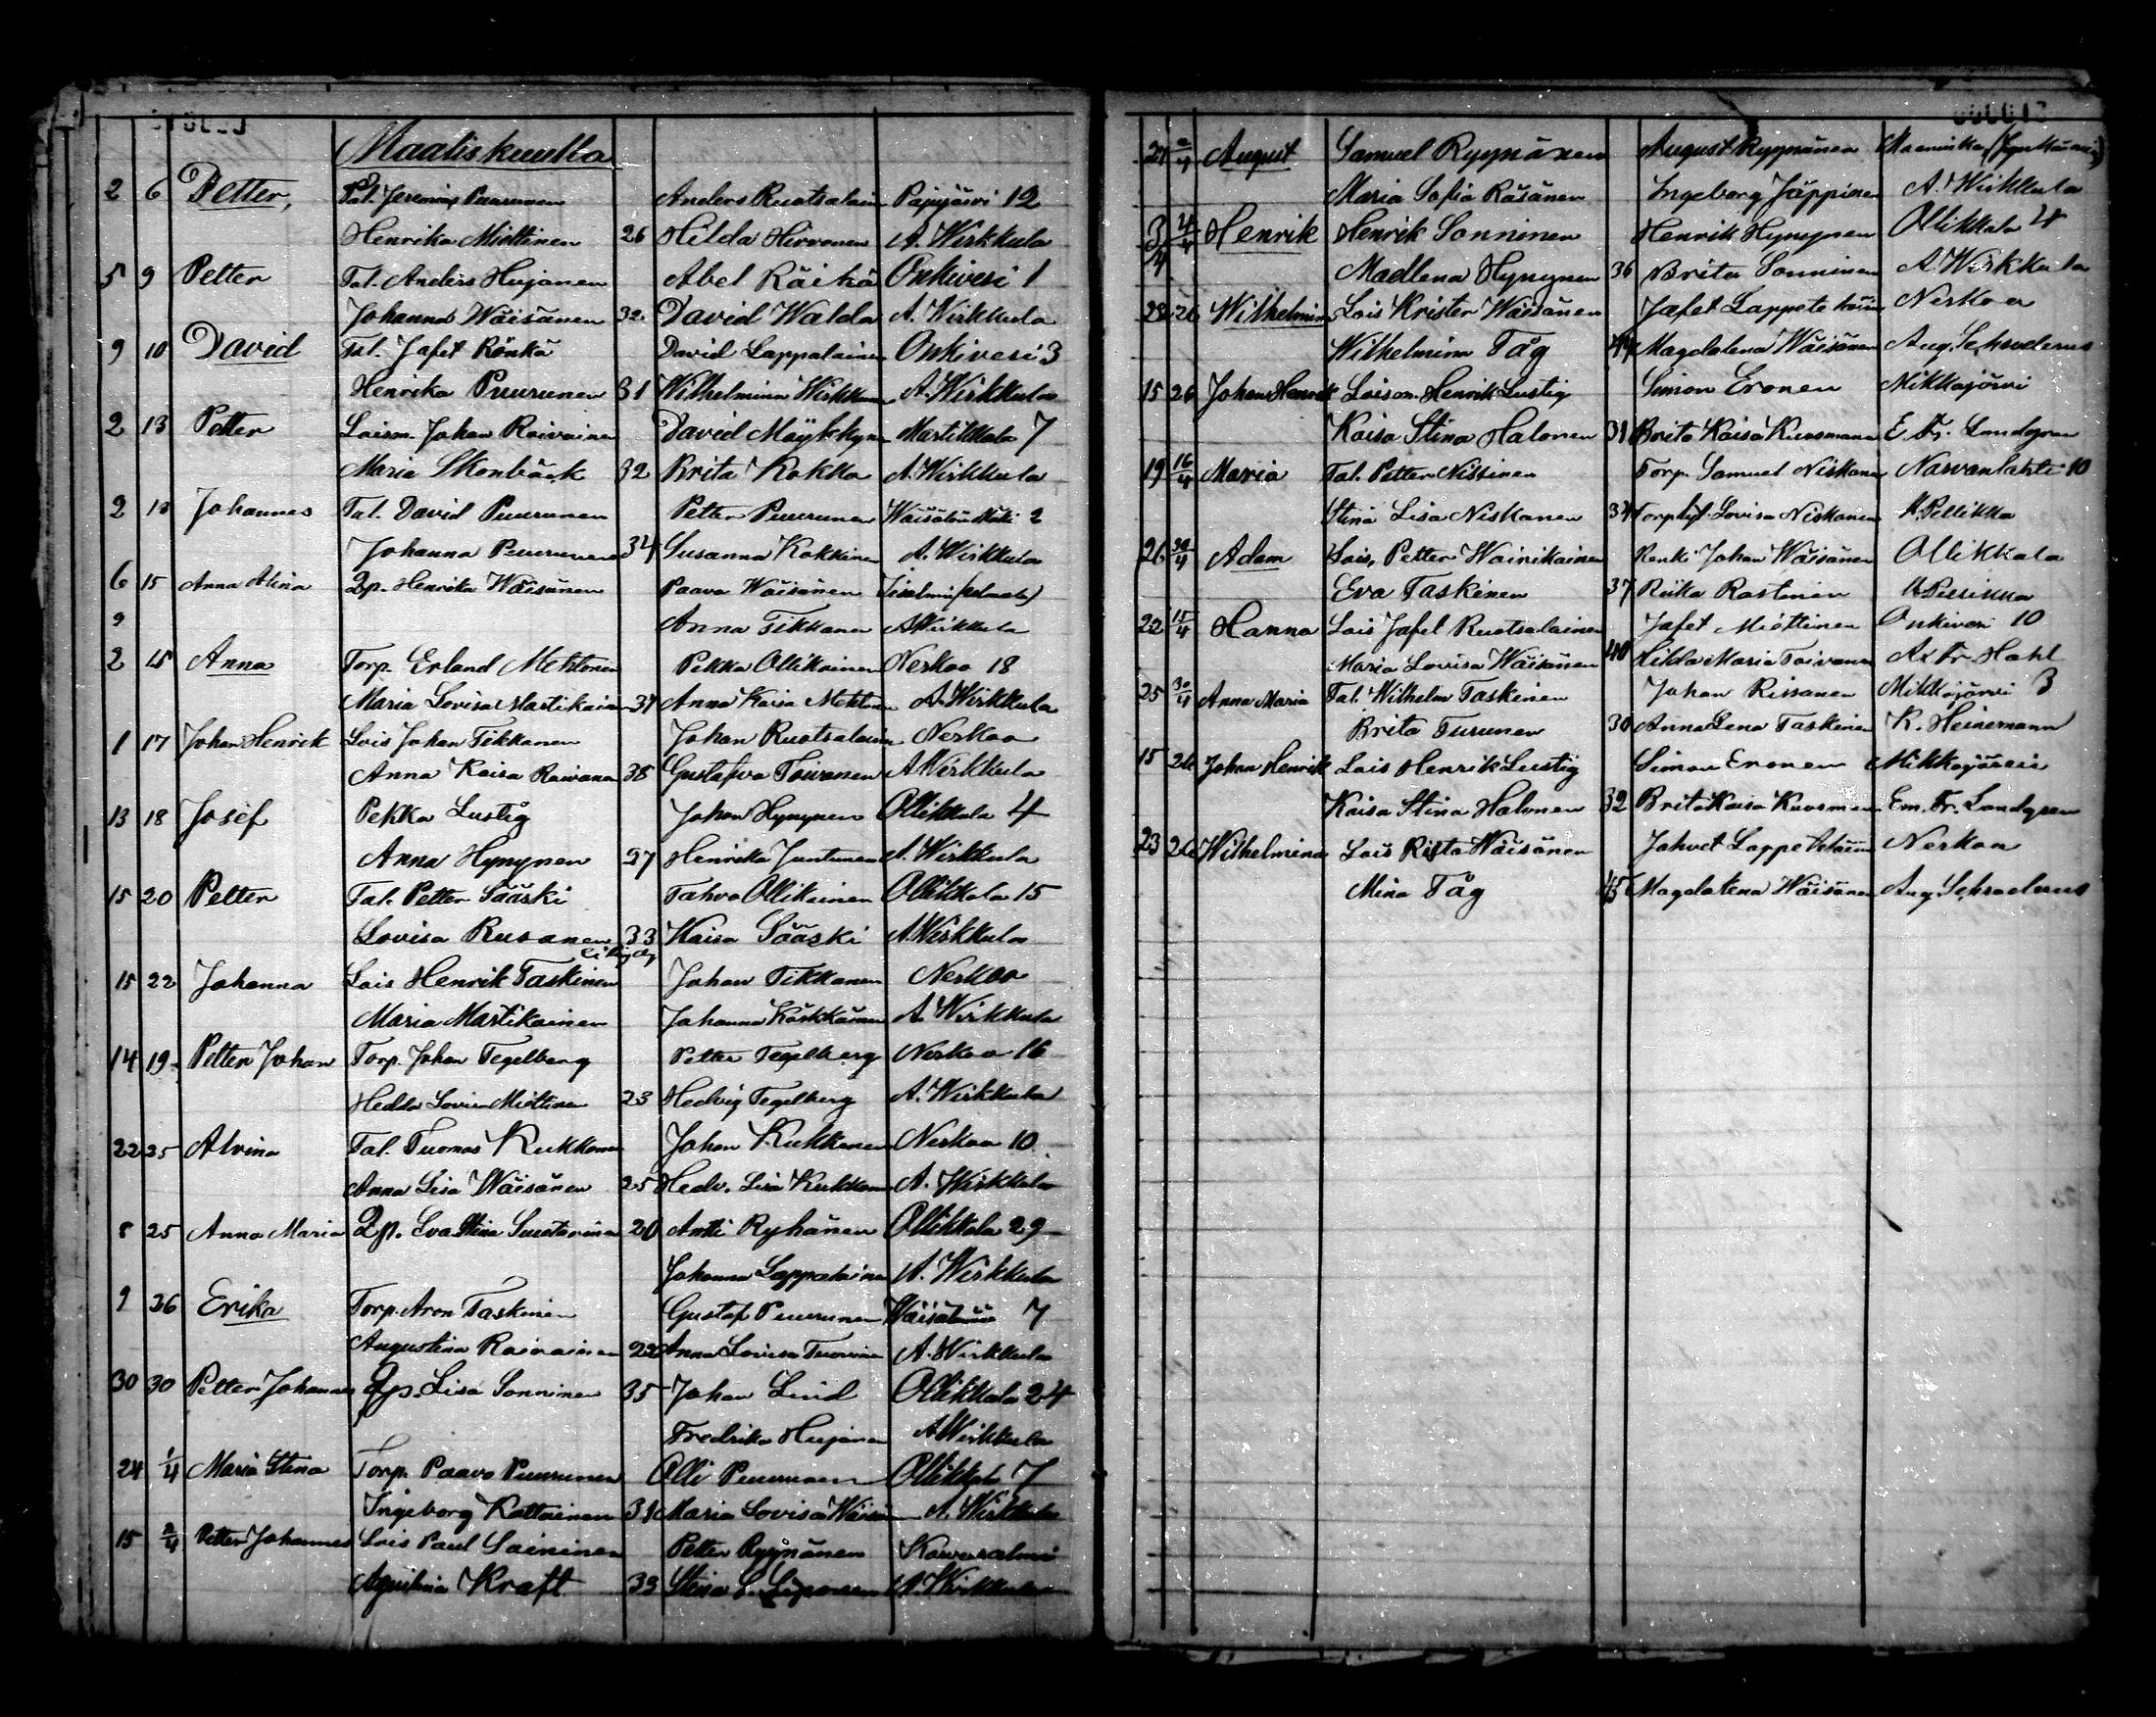 Maaliskuulla
2 6 Petter, Tal. Jeremias Puurunen Anders Ruotsalain Pajujärvi 12
Henrika Miettinen 26 Hilda Hirvonen A. Wirkkula
5 9 Petter Tal. Anders Hujanen Abel Räihä Onkivesi 1
Johanna Wäisänen 32 David Walda A. Wirkkula
9 10 David Tal. Jafet Rönkä David Lappalainen Onkivesi 3
Henrika Puurunen 31 Wilhelmina A. Wirkkula
2 13 Petter Loism. Johan Roivainen David Möykkyn Martikkala 7
Maria Skonbäck 32 Brita Kokko A. Wirkkula
2 13 Johannes Tal. David Puurunen Petter Puurunen 2
Johanna Puurunen 34 Susanna Kokkinen A. Wirkkula
6 15 Anna Alina Qp. Henrika Wäisänen Paavo Wäisänen
9 Anna Tikkanen A Wirkkula
2 15 Anna Torp. Erland Mehtonen Pekka Ollikainen Nerkoo 18
Maria Lovisa Martikain 37 Anna Kaisa A. Wirkkula
1 17 Johan Henrik Lois Johan Tikkanen Johan Ruotsalain Nerkoo
Anna Kaisa 38 Gustafva Toivanen A Wirkkula
13 18 Josef Pekka Lustig Johan Hynynen Ollikkala 4
Anna Hynynen 27 Henrika Juntunen A. Wirkkula
15 20 Petter Tal. Petter Sääski Tahvo Ollikainen Ollikkala 15
Lovisa Rusanen 33 Kaisa Sääski A Wirkkula
15 22 Johanna Lois Henrik Taskinen Johan Tikkanen Nerkoo
Maria Martikainen Johanna A. Wirkkula
14 19 Petter Johan Torp. Johan Tegelberg Petter Tegelberg Nerkoo 16
Hedda Lovisa Miettinen 23 Hedvig Tegelberg A. Wirkkula
22 25 Alvina Tal. Tuomas Kukkonen Johan Kukkonen Nerkoo 10
Anna Lisa Wäisänen 25 Hedv. Lisa Kukkonen A. Wirkkula
8 25 Anna Maria Qp. Eva Stina 20 Antti Ryhänen Ollikkala 29
Johanna Lappalainen A. Wirkkula
9 26 Erika Torp. Aron Taskinen Gustaf Puurunen 7
Augustina Roivainen 22 Anna Lovisa A. Wirkkula
30 30 Petter Johannes Qp. Lisa Sonninen 35 Johan Lind Ollikkala 24
Fredrika Hujanen A Wirkkula
24 1/4 Maria Stina Torp. Paavo Puurunen Olli Puurunen Ollikkala 7
Ingeborg 31 Maria Lovisa Wäisän A. Wirkkula
15 2/4 Petter Johannes Lois Paul Saininen Petter Ryynänen
Kraft 39 Stina A. Wirkkula
2/4 August Samuel Ryynänen August Ryynänen
Maria Sofia Räsänen Ingeborg Jäppinen A. Wirkkula
3/4 4/4 Henrik Henrik Sonninen Henrik Hynynen Ollikkala 4
Madlena Hynynen 36 Brita Sonninen A. Wirkkula
23 26 Wilhelmina Lois Krister Wäisänen Jafet Lappeteläin Nerkoo
Wilhelmina Tåg 44 Magdalena Wäisänen Aug. Schroderus
15 26 Johan Henrik Loism. Henrik Lustig Simon Eronen Mikkajärvi
Kaisa Stina Halonen 31 Brita Kaisa Kuosmanen E. Fr. Landgren
19 16/4 Maria Tal. Petter Nissinen Torp. Samuel Niskanen Narvanlahti 10
Stina Lisa Niskanen 34 Lovisa Niskanen
26 30/4 Adam Lois, Petter Wainikainen Renki Johan Wäisänen Ollikkala
Eva Taskinen 37 Riika
22 15/4 Hanna Lois Jafet Ruotsalainen Jafet Miettinen Onkivesi 10
Maria Lovisa Wäisänen 40 Hilda Maria Toivanen Ax Fr. Hahl
25 30/4 Anna Maria Tal. Wilhelm Taskinen Johan Rissanen Mikkajärvi 3
Brita Turunen 30 Anna Lena Taskinen K. Heinemann
15 26 Johan Henrik Lois Henrik Lustig Simon Eronen Mikkajärvi
Kaisa Stina Halonen 32 Brita Kaisa Kuosmanen Em. Fr. Landgren
23 26 Wilhelmina Lois Risto Wäisänen Jahvet Lappeteläinen Nerkoo
Mina Tåg 45 Magdalena Wäisänen Aug. Schroderus